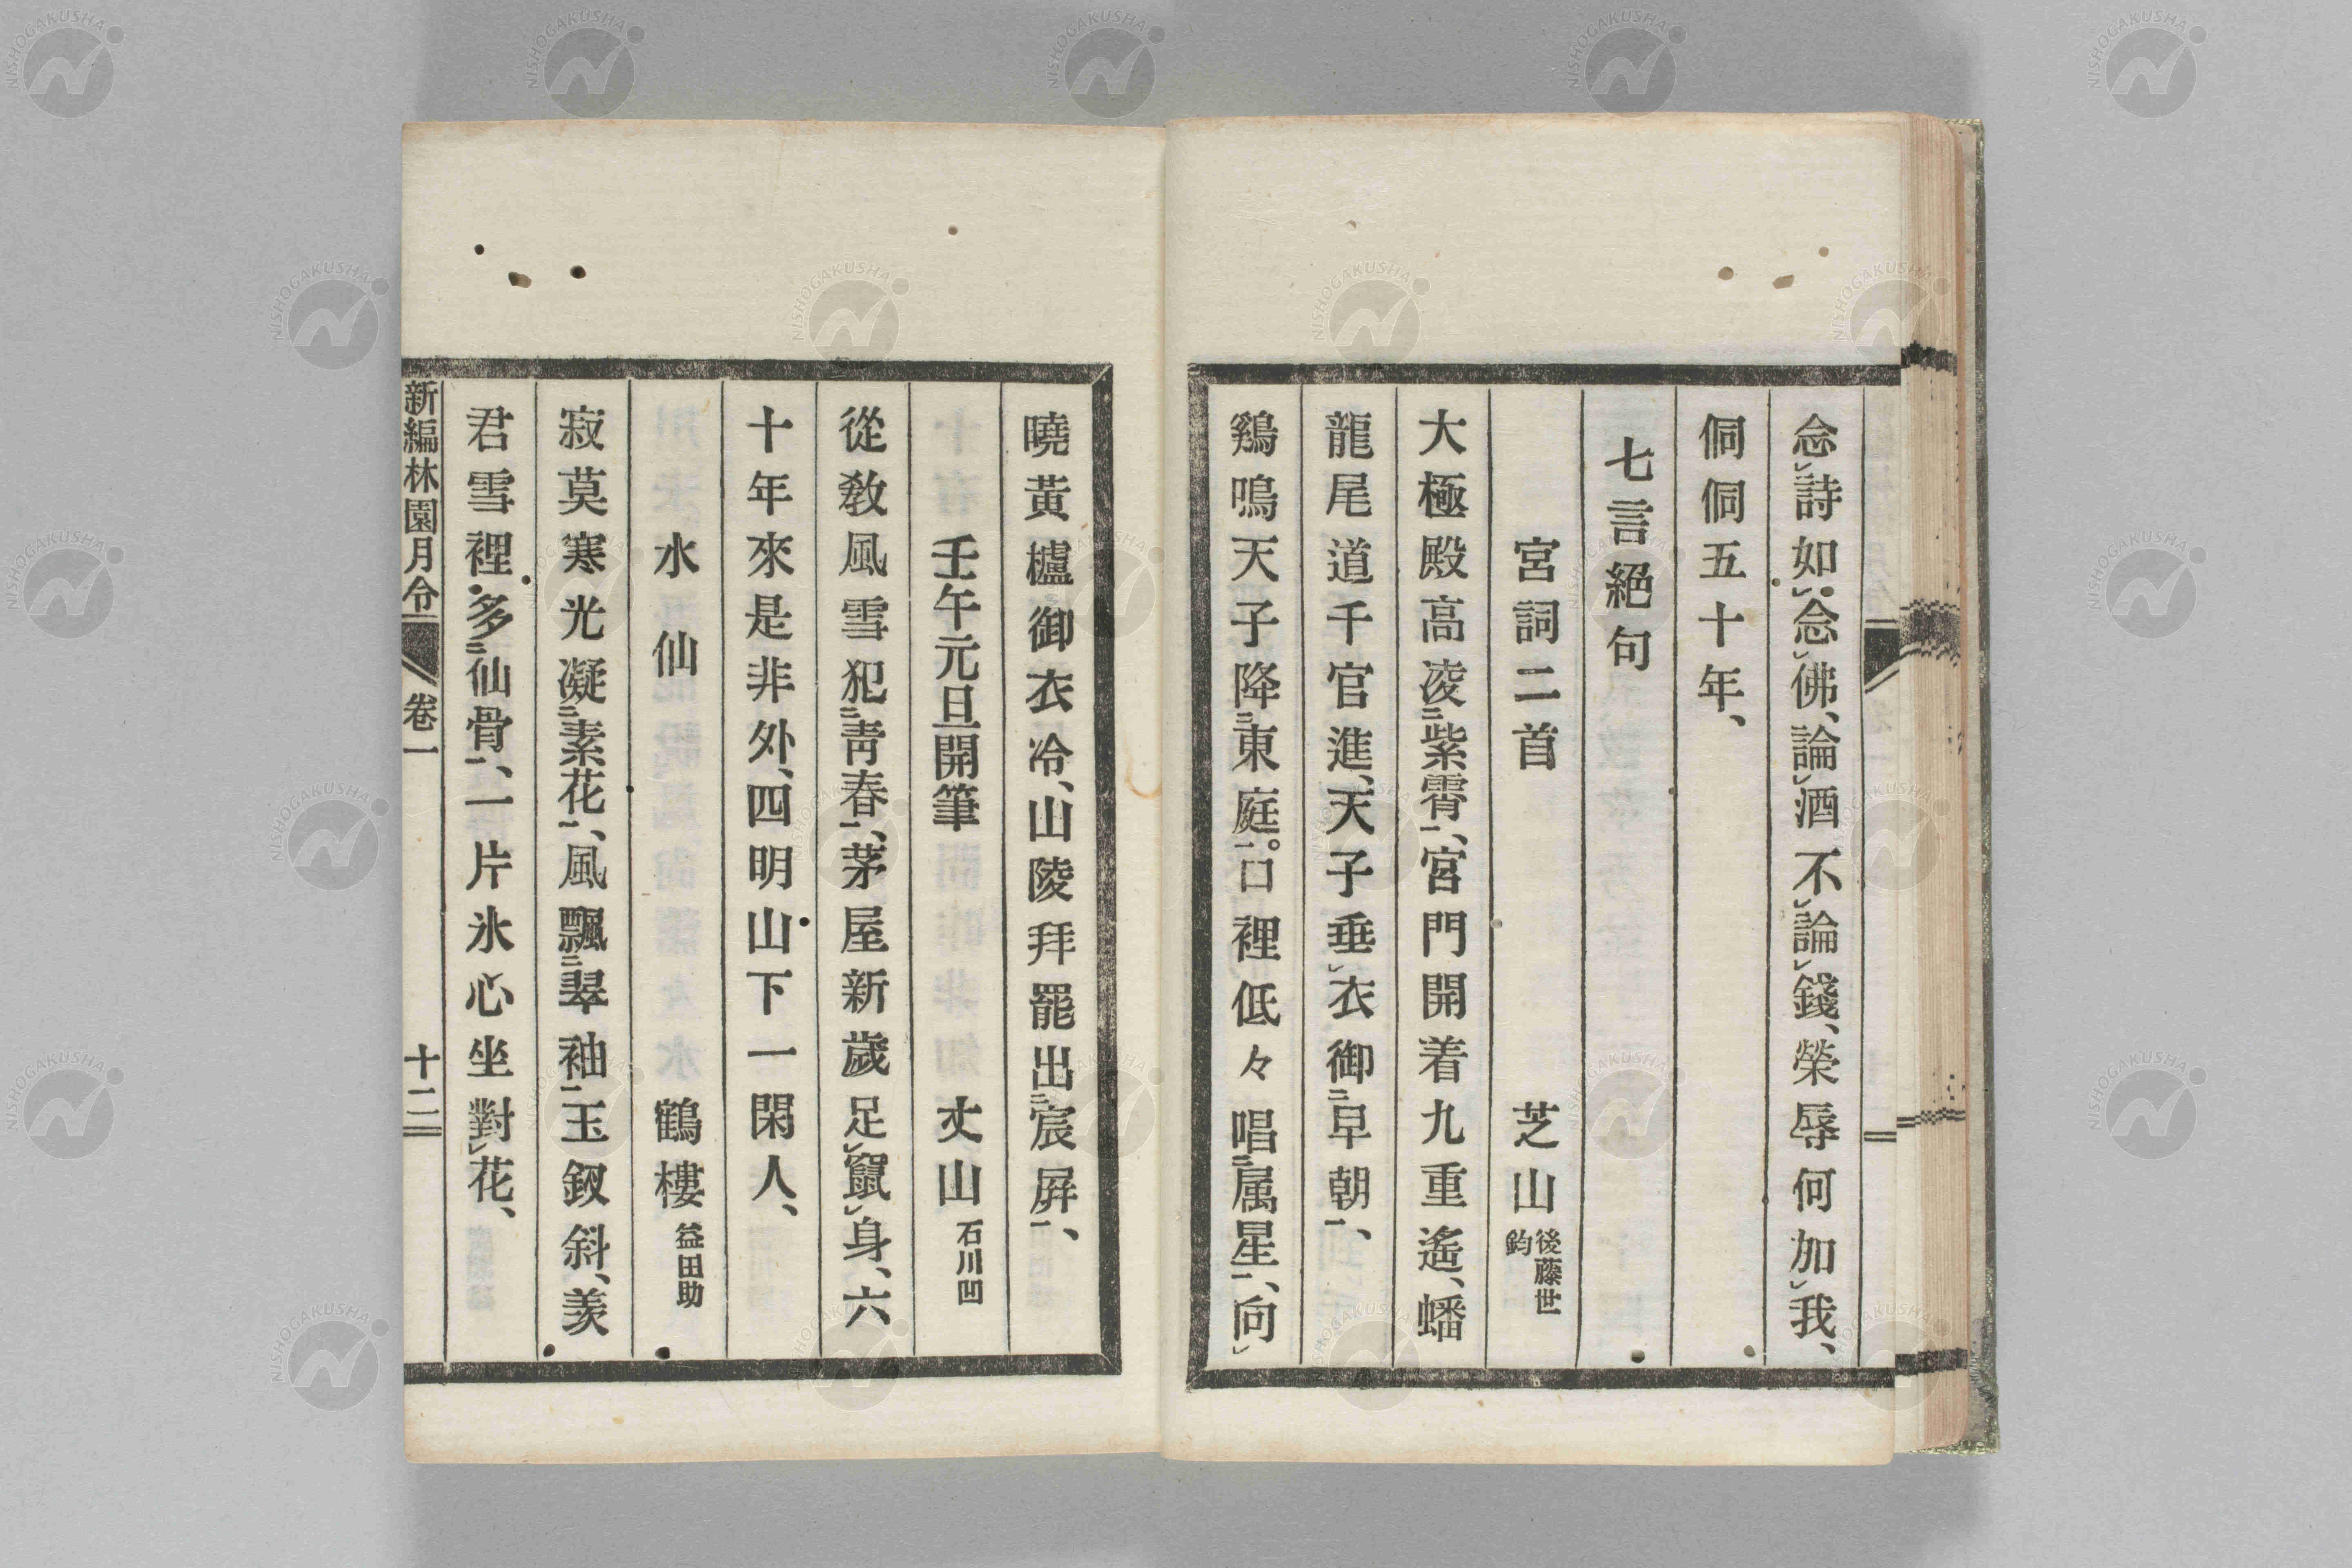 念詩如念佛、論酒不論錢、榮辱何加我、
侗侗五十年、
七言絕句
宮詞二首 芝山 後藤世鈞
大極殿高凌二紫霄一、宮門開着九重遙、蟠
龍尾道千官進、天子垂レ衣御二早朝一、
鷄鳴天子降二東庭一。口裡低々唱二属星一、向レ
曉黃櫨御衣冷、山陵拜罷出二宸屛一、
壬午元旦開筆 丈山 石川凹
從敎風雪犯二靑春一、茅屋新歲足レ竄レ身、六
十年來是非外、四明山下一閑人、
水仙 鶴樓 益田助
寂莫寒光凝二素花一、風飄二翠袖一玉釵斜、羨
君雪裡多二仙骨一、一片氷心坐對レ花、
新編林園月令 卷一 十二
NISHOGAKUSHA